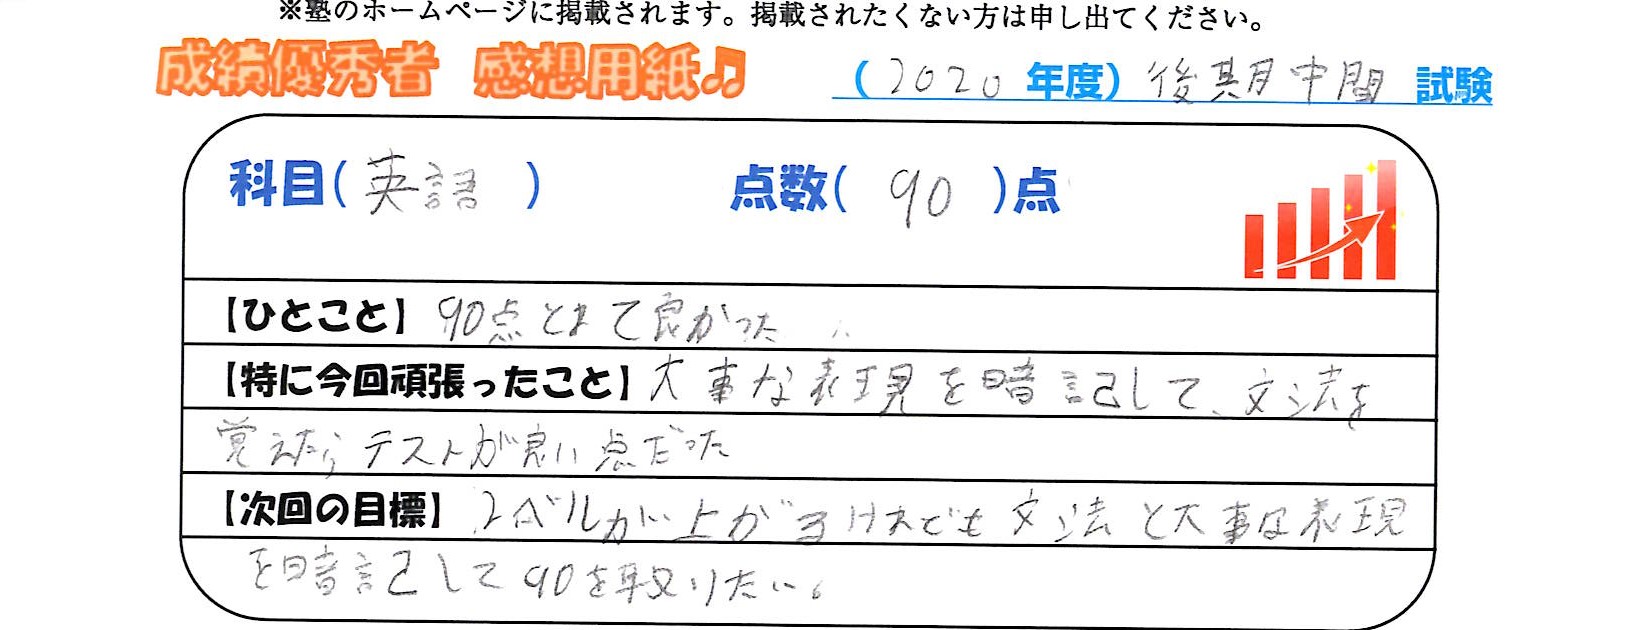 ※塾のホームページに掲載されます。掲載されたくない方は申し出てください。
成績優秀者　感想用紙♫　（2020 年度）後期中間 試験
科目（英語）　点数（90）点
【ひとこと】90点とれて良かった
【特に今回頑張ったこと】大事な表現を暗記して、文法を
覚えたらテストが良い点だった
【次回の目標】レベルが上がるけれども文法と大事な表現
を暗記して90を取りたい。